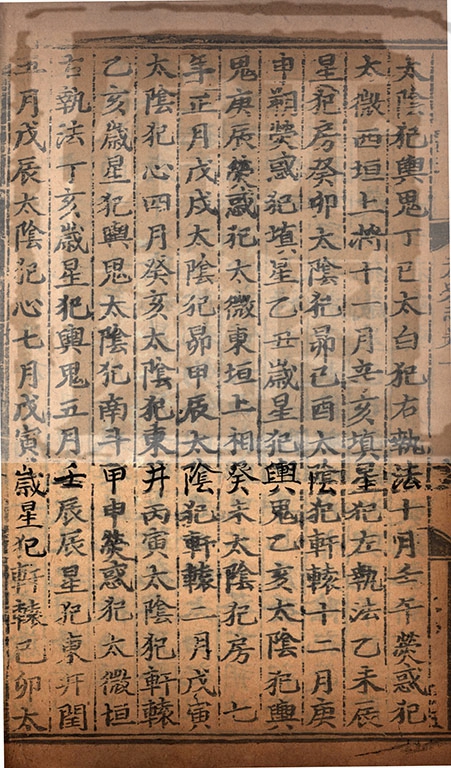 太陰犯輿鬼丁巳太白犯右執法十月壬午熒惑犯
太微西垣上將十一月辛亥填星犯左執法乙未辰
星犯房癸卯太陰犯昴己酉太陰犯軒轅十二月庚
申朔熒惑犯填星乙丑歲星犯輿鬼乙亥太陰犯輿
鬼庚辰熒惑犯太微東垣上相癸未太陰犯房 七
年正月戊戌太陰犯昴甲辰太陰犯軒轅二月戊寅
太陰犯心四月癸亥太陰犯東井丙寅太陰犯軒轅
乙亥歲星犯輿鬼太陰犯南斗甲申熒惑犯太微垣
右執法丁亥歲星犯輿鬼五月壬辰辰星犯東井閏
五月戊辰太陰犯心七月戊寅歲星犯軒轅己卯太